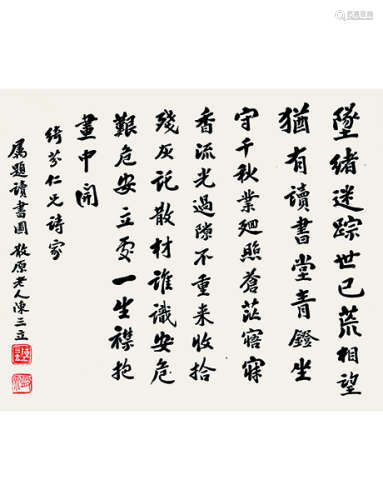 墜緒迷踪世已荒相望
猶有讀書堂青鐙坐
守千秋業迴照蒼茫寤寐
香流光過隙不重来收拾
殘灰記散材誰識安危
艱危安立處一生襟抱
畫中開
綺芬仁兄詩家
屬題讀書圖 散原老人陳三立